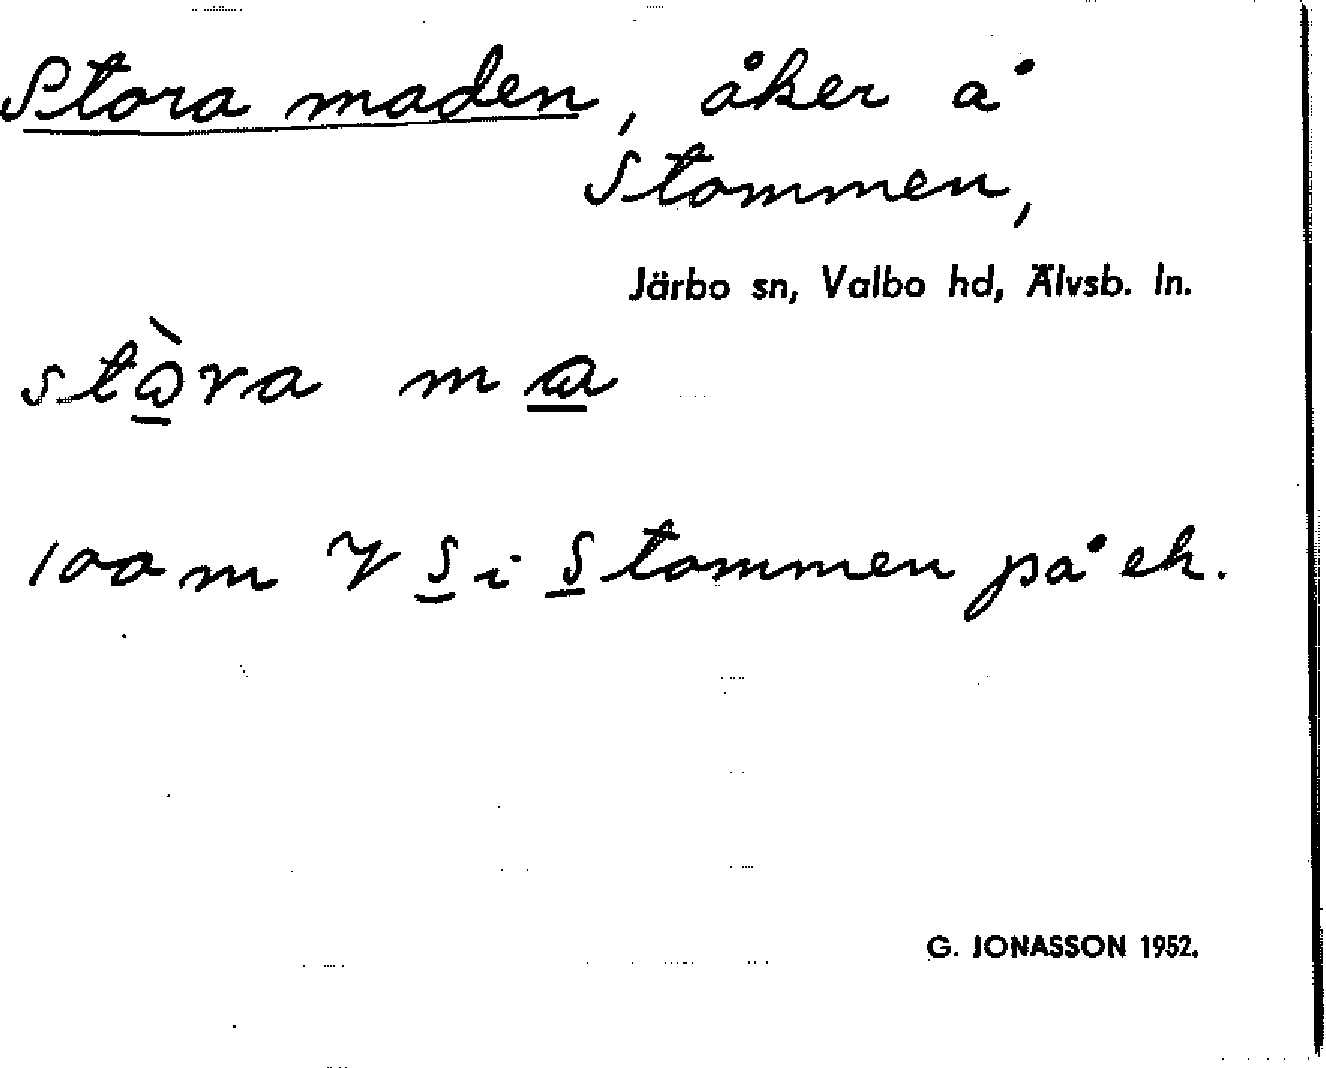 Stora maden, åker å
Stommen,
Järbo sn, Valbo hd, Älvsb. ln.
stòra ma
100 m V S i Stommen på ek.
G. JONASSON 1952.